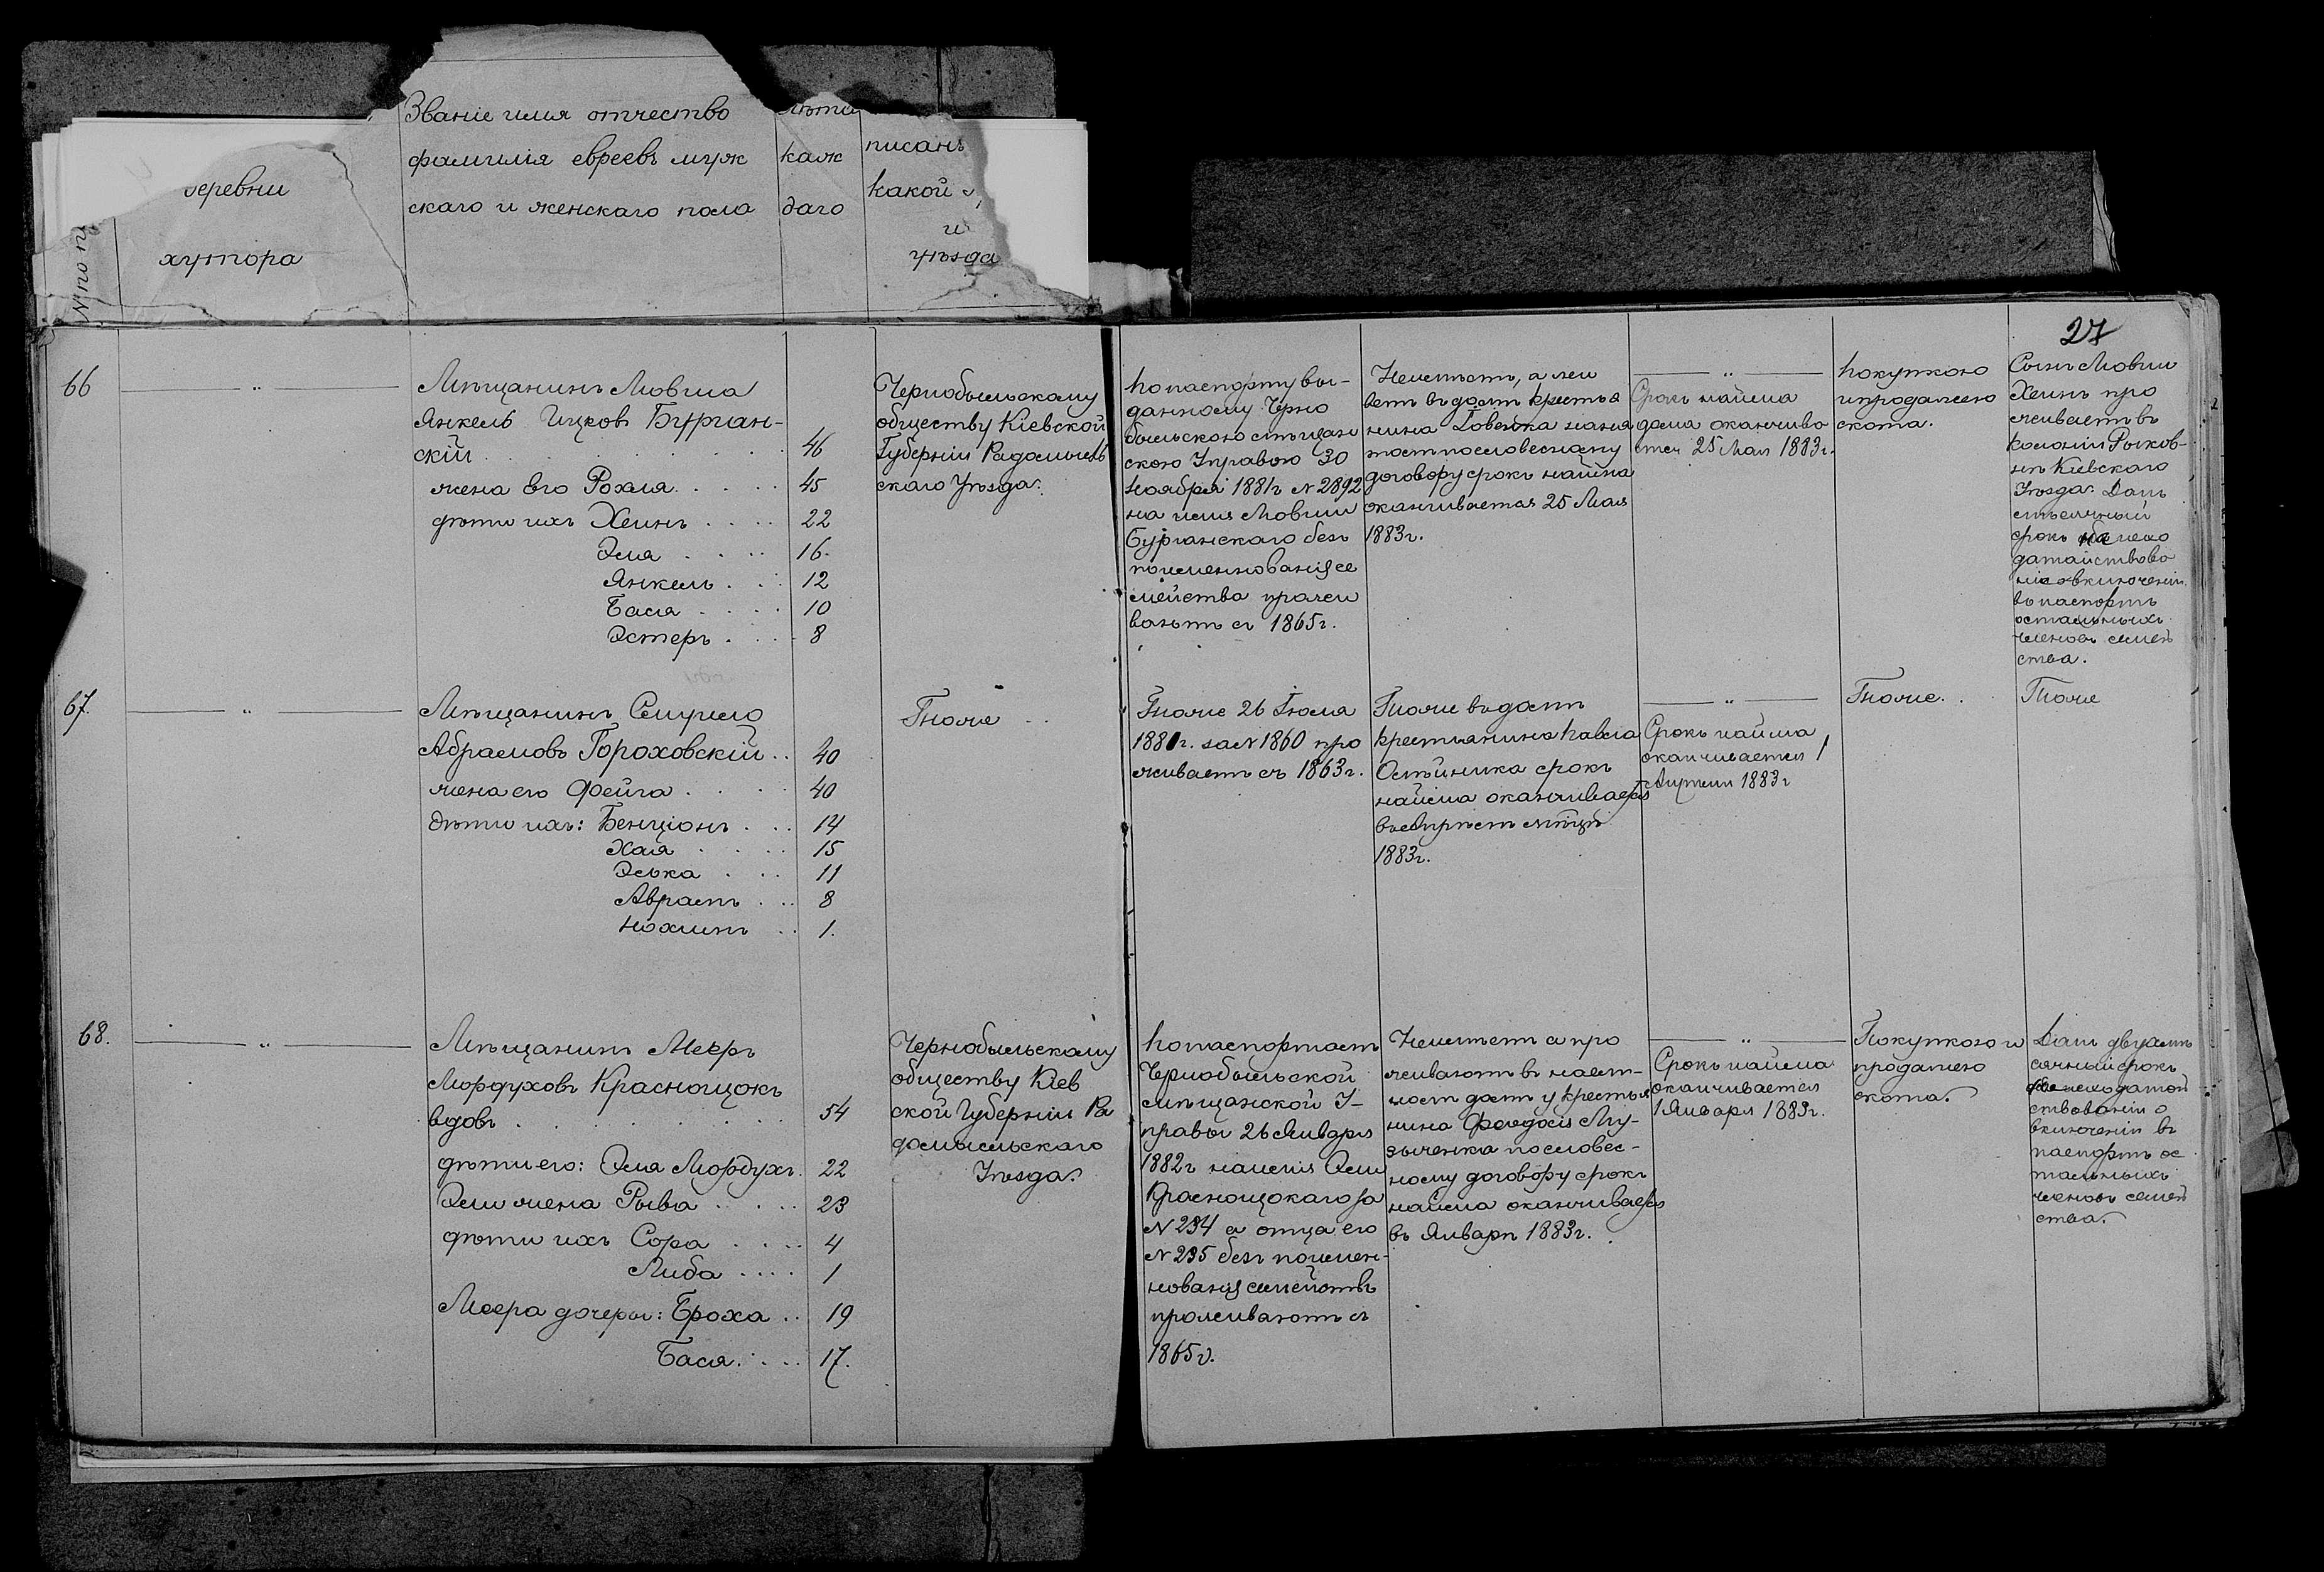 Званіе имя отчество
фамилія евреевъ муж
скаго и женскаго пола
Лѣта
каж
даго
писанъ
какой
и
уѣзда
деревни
хутора
№ по п
27
66
Мѣщанинъ Мовша
Янкель Ицковъ Бурган-
скій 46
жена его Рохля 45
дѣти ихъ Хеинъ 22
Эля 16
Янкель 12
Бася 10
Эстеръ 8
Чернобыльскому
обществу Кіевской
Губерніи Радомысль
скаго Уѣзда.
По паспорту вы-
данному Черно
быльскою мѣщан
скою Управою 30
Ноября 1881г № 2892
на имя Мовши
Бурганскаго безъ
поименнованія се
мейства прожи
ваетъ съ 1865г.
Неимѣетъ, а жи
ветъ въ домѣ крестья
нина наня
томъ по словесному
договору срокъ найма
оканчивается 25 Мая
1883г.
Срокъ найма
дома оканчива
ется 25 Мая 1883г.
Покупкою
и продажею
скота.
Сынъ Мовши
Хеинъ про
живаетъ въ
колоніи Рыков-
нѣ Кіевскаго
Уѣзда. Данъ
мѣсячный
срокъ на исхо
датайствова
ніе о включеніи
въ паспортъ
остальныхъ
членовъ семей
ства.
67.
Мѣщанинъ Смуйло
Абрамовъ Гороховскій 40
жена его Фейга 40
дѣти ихъ: Бенціонъ 14
Хая 15
Эська 11
Аврамъ 8
Нохимъ 1.
Тоже
Тоже 26 Іюля
1881г. за № 1860 про
живаетъ съ 1863г.
Тоже въ домѣ
крестьянина Павла
срокъ
найма оканчивается
въ Апрѣлѣ мѣцѣ
1883г.
Срокъ найма
оканчивается 1
Апрѣля 1883г
Тоже.
Тоже
68.
Мѣщанинъ Мееръ
Мордуховъ Краснощокъ
вдовъ 54
дѣти его: Эля Мордухъ 22
Эли жена Рыва 23
дѣти ихъ Сора 4
Либа 1
Меера дочеры: Броха 19
Бася 17.
Чернобыльскому
обществу Кіев
ской Губерніи Ра
домысльскаго
Уѣзда.
По паспортамъ
Чернобыльской
мѣщанской У-
правы 26 Января
1882г на имя Эли
Краснощокаго за
№ 234 а отца его
№ 235 безъ поимен-
нованія семействъ
проживаютъ съ
1865г.
Неимѣетъ а про
живаютъ въ наем-
номъ домѣ у крестья
нина Феодосія Му-
зыченка по словес-
ному договору срокъ
найма оканчивается
въ Январѣ 1883г.
Срокъ найма
оканчивается
1 Января 1883г.
Покупкою и
продажею
скота.
Данъ двухмѣ
сячный срокъ
исходатай
ствованіи о
включеніи въ
паспортъ ос
тальныхъ
членовъ семей
ства.